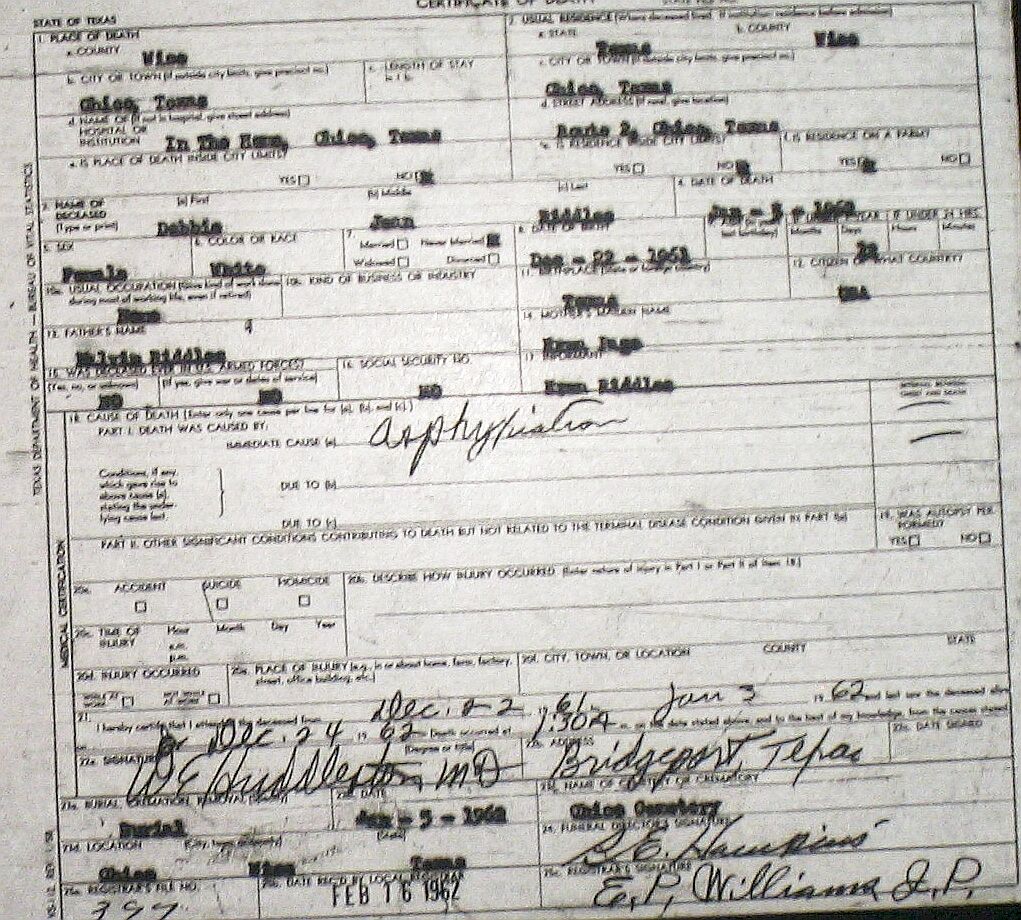 CERTIFICATE OF DEATH
STATE OF TEXAS
1. PLACE OF DEATH
a. COUNTY
Wise
2. USUAL RESIDENCE (Where deceased lived. If institution: residence before admission)
a. STATE
Texas
b. COUNTY
Wise
b. CITY OR TOWN (If outside city limits, give precinct no.)
Chico, Texas
c. LENGTH OF STAY
in 1 b.
c. CITY OR TOWN (If outside city limits, give precinct no.)
Chico, Texas
d. NAME OF (If not in hospital, give street address)
HOSPITAL OR
INSTITUTION
In The Home, Chico, Texas
d. STREET ADDRESS (If rural, give location)
Route 2, Chico, Texas
e. IS PLACE OF DEATH INSIDE CITY LIMITS?
YES NO
e. IS RESIDENCE INSIDE CITY LIMITS?
YES NO
f. IS RESIDENCE ON A FARM?
YES NO
3. NAME OF
DECEASED
(Type or print)
(a) First
Debbie
(b) Middle
Jean
(c) Last
Riddles
4. DATE OF DEATH
Jan - 3 - 1962
5. SEX
Female
6. COLOR OR RACE
White
7.
Married Never Married
Widowed Divorced
8. DATE OF BIRTH
Dec - 22 - 1961
YEAR IF UNDER 24 HRS.
last birthday) Months Days Hours Minutes
12
10a. USUAL OCCUPATION (Give kind of work done
during most of working life, even if retired)
None
10b. KIND OF BUSINESS OR INDUSTRY
11. BIRTHPLACE (State or foreign country)
Texas
12. CITIZEN OF WHAT COUNTRY?
USA
13. FATHER'S NAME
Melvin Riddles
14. MOTHER'S MAIDEN NAME
Page
15. WAS DECEASED EVER IN U.S. ARMED FORCES?
(Yes, no, or unknown)
NO
(If yes, give war or dates of service)
NO
16. SOCIAL SECURITY NO.
NO
17. INFORMANT
Riddles
18. CAUSE OF DEATH (Enter only one cause per line for (a), (b), and (c).)
PART I. DEATH WAS CAUSED BY:
IMMEDIATE CAUSE (a)
asphyxiation
INTERVAL BETWEEN
ONSET AND DEATH
Conditions, if any,
which gave rise to
above cause (a),
stating the under-
lying cause last.
DUE TO (b)
DUE TO (c)
PART II. OTHER SIGNIFICANT CONDITIONS CONTRIBUTING TO DEATH BUT NOT RELATED TO THE TERMINAL DISEASE CONDITION GIVEN IN PART I(a)
19. WAS AUTOPSY PER-
FORMED?
YES NO
20a. ACCIDENT SUICIDE HOMICIDE
20b. DESCRIBE HOW INJURY OCCURRED (Enter nature of injury in Part I or Part II of item 18.)
20c. TIME OF
INJURY
Hour Month Day Year
a.m.
p.m.
20d. INJURY OCCURRED
WHILE AT
WORK
NOT WHILE
AT WORK
20e. PLACE OF INJURY (e.g., in or about home, farm, factory,
street, office building, etc.)
20f. CITY, TOWN, OR LOCATION COUNTY STATE
21.
I hereby certify that I attended the deceased from Dec. 22 1961 to Jan 3 1962 and last saw the deceased alive
on Dec. 24 1962 Death occurred at 1:30A m. on the date stated above, and to the best of my knowledge, from the causes stated
22a. SIGNATURE
(Degree or title)
W E Huddleston MD
22b. ADDRESS
Bridgeport, Texas
22c. DATE SIGNED
23a. BURIAL, CREMATION, REMOVAL
Burial
23b. DATE
Jan - 5 - 1962
23c. NAME OF CEMETERY OR CREMATORY
Chico Cemetery
23d. LOCATION (City, town, or county) (State)
Chico Wise Texas
24. FUNERAL DIRECTOR'S SIGNATURE
Hawkins
25a. REGISTRAR'S FILE NO.
399
25b. DATE REC'D BY LOCAL REGISTRAR
FEB 16 1962
25c. REGISTRAR'S SIGNATURE
E. P. Williams J. P.
TEXAS DEPARTMENT OF HEALTH — BUREAU OF VITAL STATISTICS
MEDICAL CERTIFICATION